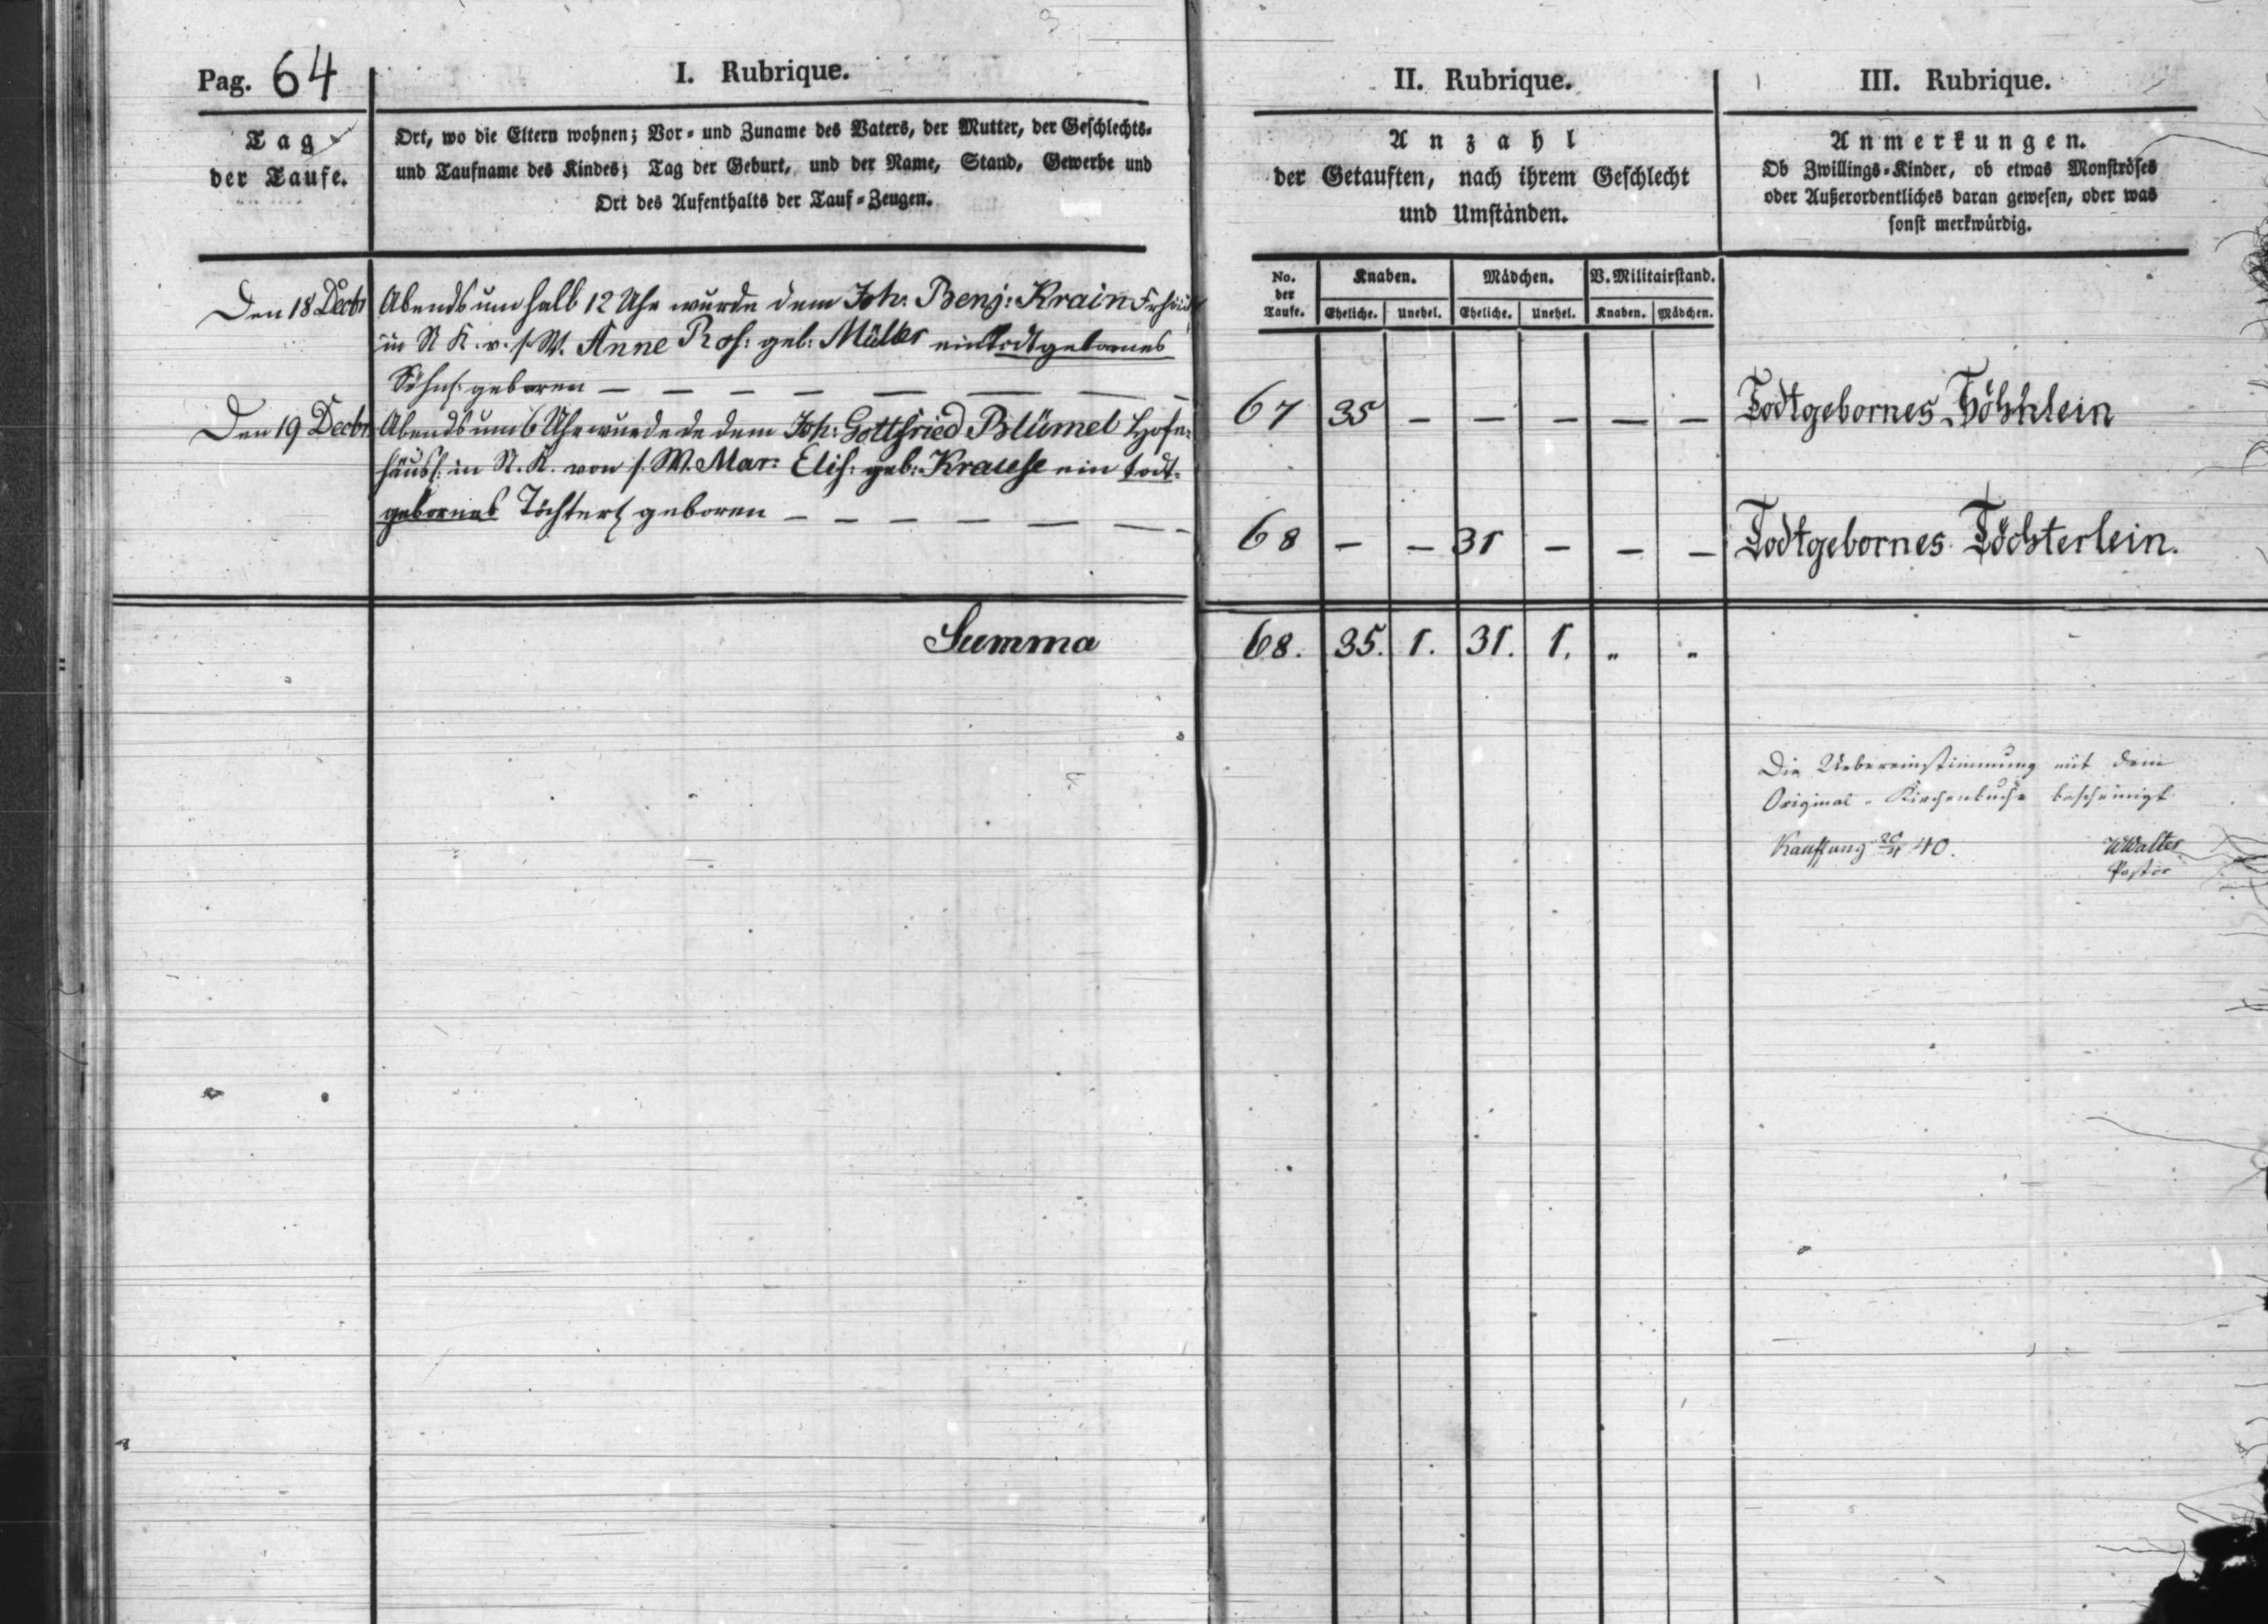 Pag. 64
I. Rubrique.
Tag
der Taufe.
Ort, wo die Eltern wohnen; Vor- und Zuname des Vaters, der Mutter, der Geschlechts-
und Taufname des Kindes; Tag der Geburt, und der Name, Stand, Gewerbe und
Ort des Aufenthalts der Tauf-Zeugen.
Den 18 Decbr
Abends um halb 12 Uhr wurde dem Joh. Benj: Krain Frhäusl
in N K. v. s. W. Anne Ros: geb: Müller ein todtgebornes
Söhnl: geboren — — — — — — —
Den 19 Decbr
Abends um 6 Uhr wurde de dem Joh: Gottfried Blümel Hofe-
häusl. in N. K. von s. W. Mar: Elis: geb: Krause ein todt-
gebornes Töchterl geboren — — — — — — —
Summa
II. Rubrique.
Anzahl
der Getauften, nach ihrem Geschlecht
und Umständen.
No. der Taufe.
Knaben. Mädchen. V. Militairstand.
Eheliche. Unehel. Eheliche. Unehel. Knaben. Mädchen.
67 35 — — — — —
68 — — 31 — — —
68. 35. 1. 31. 1. " "
III. Rubrique.
Anmerkungen.
Ob Zwillings-Kinder, ob etwas Monströses
oder Außerordentliches daran gewesen, oder was
sonst merkwürdig.
Todtgebornes Söhnlein
Todtgebornes Töchterlein.
Die Uebereinstimmung mit dem
Original-Kirchenbuche bescheinigt
Kauffung 40.
WWalter
Pastor